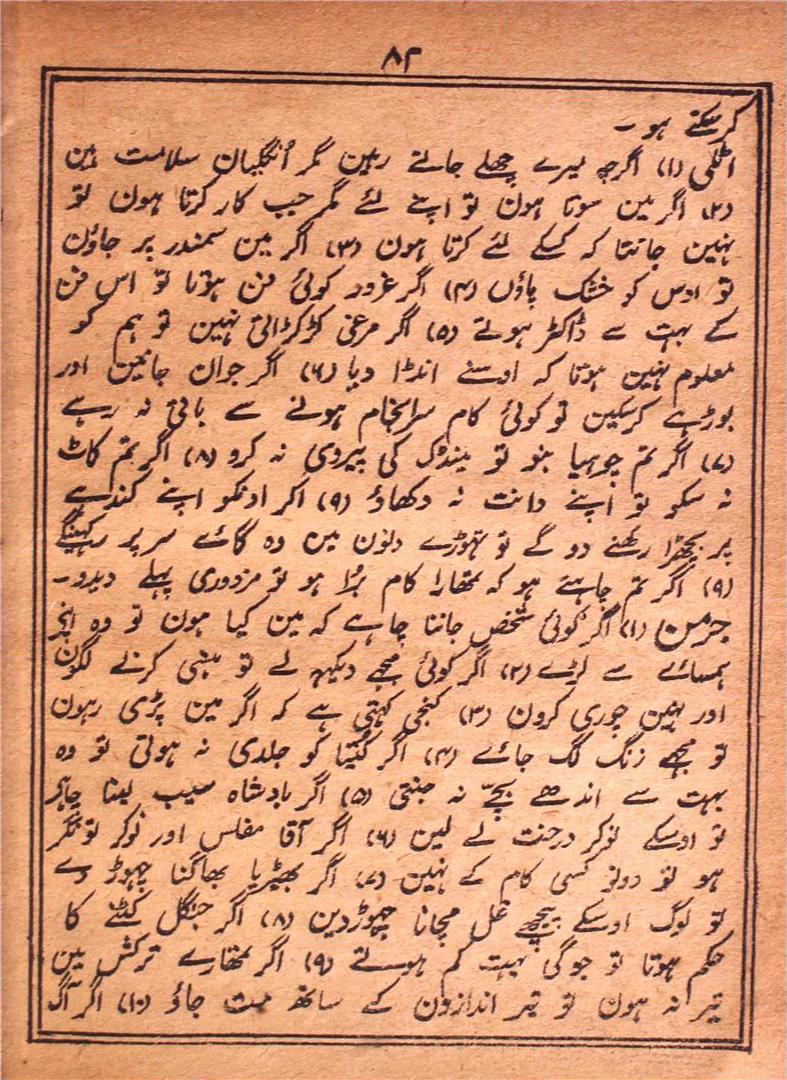 ۸۲
کرسکتے ہو۔
اٹلی (۱) اگرچہ میرے چھلے جاتے رہین مگر اُنگلیان سلامت ہین
(۲) اگر مین سوتا ہون تو اپنے لئے مگر جب کار کرتا ہون تو
نہین جانتا کہ کسکے لئے کرتا ہون (۳) اگر مین سمندر پر جاؤن
تو اوس کو خشک پاؤں (۴) اگر غرور کوئی فن ہوتا تو اس فن
کے بہت سے ڈاکٹر ہوتے (۵) اگر مرغی کڑکڑاتی نہین تو ہم کو
معلوم نہین ہوتا کہ اوسنے انڈا دیا (۶) اگر جوان جانین اور
بوڑہے کرسکین تو کوئی کام سرانجام ہونے سے باقی نہ رہے
(۷) اگر تم چوہیا بنو تو مینڈک کی پیروی نہ کرو (۸) اگر تم کاٹ
نہ سکو تو اپنے دانت نہ دکھاؤ (۹) اکر اونکو اپنے کندہے
پر بچھڑا رکھنے دو گے تو تہوڑے دلون مین وہ گاے سر پر رکھینگے
(۹) اگر تم چاہتے ہو کہ تمھارا کام بُرا ہو تو مزدوری پہلے دیدو۔
جرمن (۱) اگر کوئی شخص جاننا چاہے کہ مین کیا ہون تو وہ اپنے
ہمسائے سے لڑے (۲) اگر کوئی مجھے دیکھہ لے تو ہنسی کرنے لگون
اور نہین چوری کرون (۳) کنجی کہتی ہے کہ اگر مین پڑی رہون
تو مجھے زنگ لگ جائے (۴) اگر کُتیا کو جلدی نہ ہوتی تو وہ
بہت سے اندھے بچّے نہ جنتی (۵) اگر بادشاہ سیب لینا چاہے
تو اوسکے نوکر درخت لے لین (۶) اگر آقا مفلس اور نوکر تونگر
ہو تو دونو کسی کام کے نہین (۷) اگر بھیڑیا بھاگنا چہوڑ دے
تو لوگ اوسکے پیچھے غل مچانا چھوڑدین (۸) اگر جنگل کٹنے کا
حکم ہوتا تو جوگی بہت کم ہوتے (۹) اگر تمھارے ترکش مین
تیر نہ ہون تو تیر اندازون کے ساتھ مت جاؤ (۱۰) اگر آگ